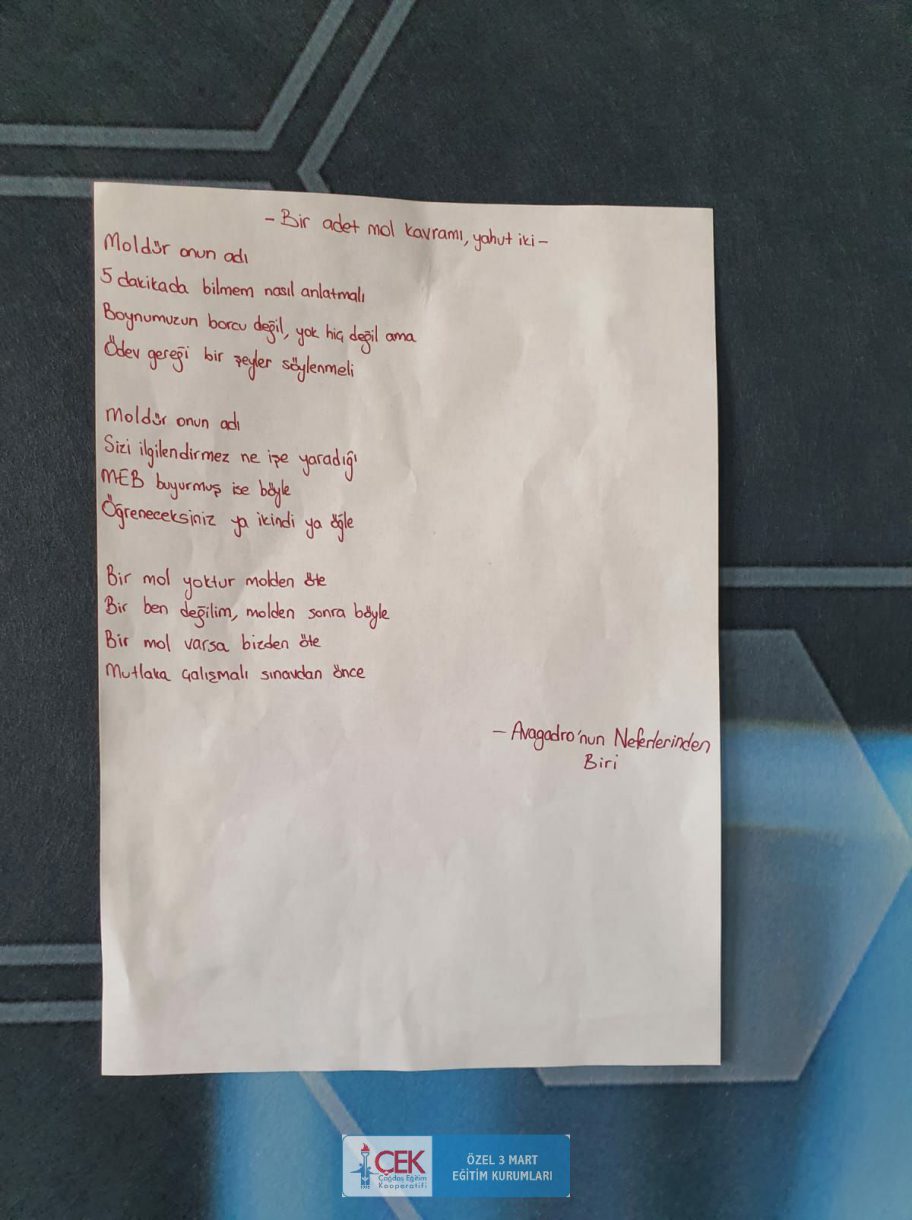 - Bir adet mol kavramı, yahut iki -
Moldür onun adı
5 dakikada bilmem nasıl anlatmalı
Boynumuzun borcu değil, yok hiç değil ama
Ödev gereği bir şeyler söylenmeli
Moldür onun adı
Sizi ilgilendirmez ne işe yaradığı
MEB buyurmuş ise böyle
Öğreneceksiniz ya ikindi ya öğle
Bir mol yoktur molden öte
Bir ben değilim, molden sonra böyle
Bir mol varsa bizden öte
Mutlaka çalışmalı sınavdan önce
- Avagadro'nun Neferlerinden
Biri
ÇEK
Çağdaş Eğitim
Kooperatifi
ÖZEL 3 MART
EĞİTİM KURUMLARI